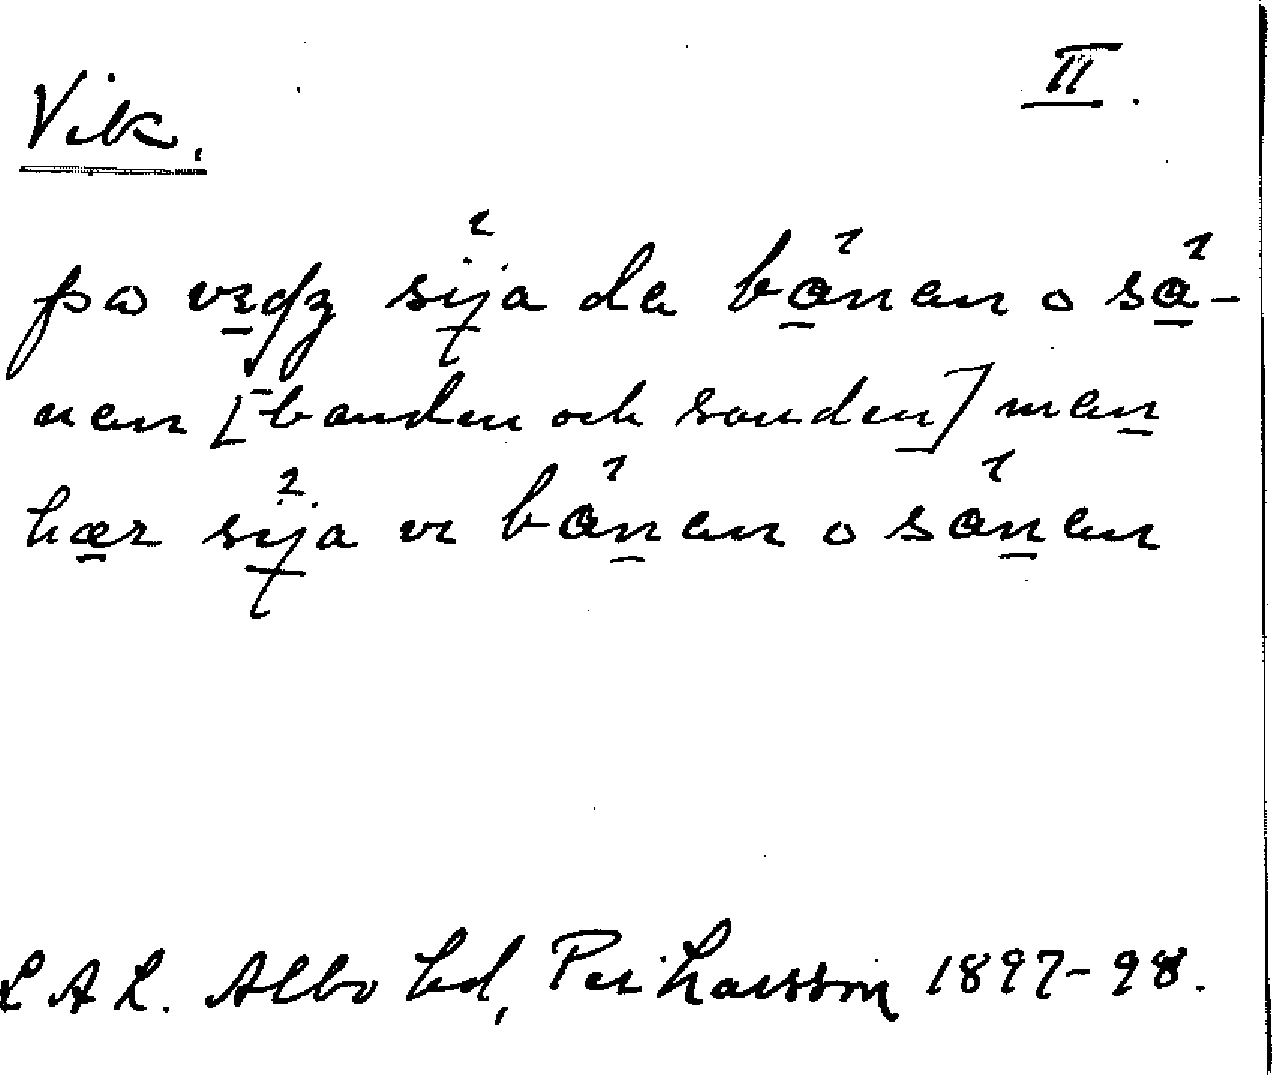 Vik.
II.
på vɛdʒ sija da bånen o så-
nen [banden och sanden] men
hær sija vɪ bånen o sånen
L A L. Albo hd, Per Larsson 1897-98.